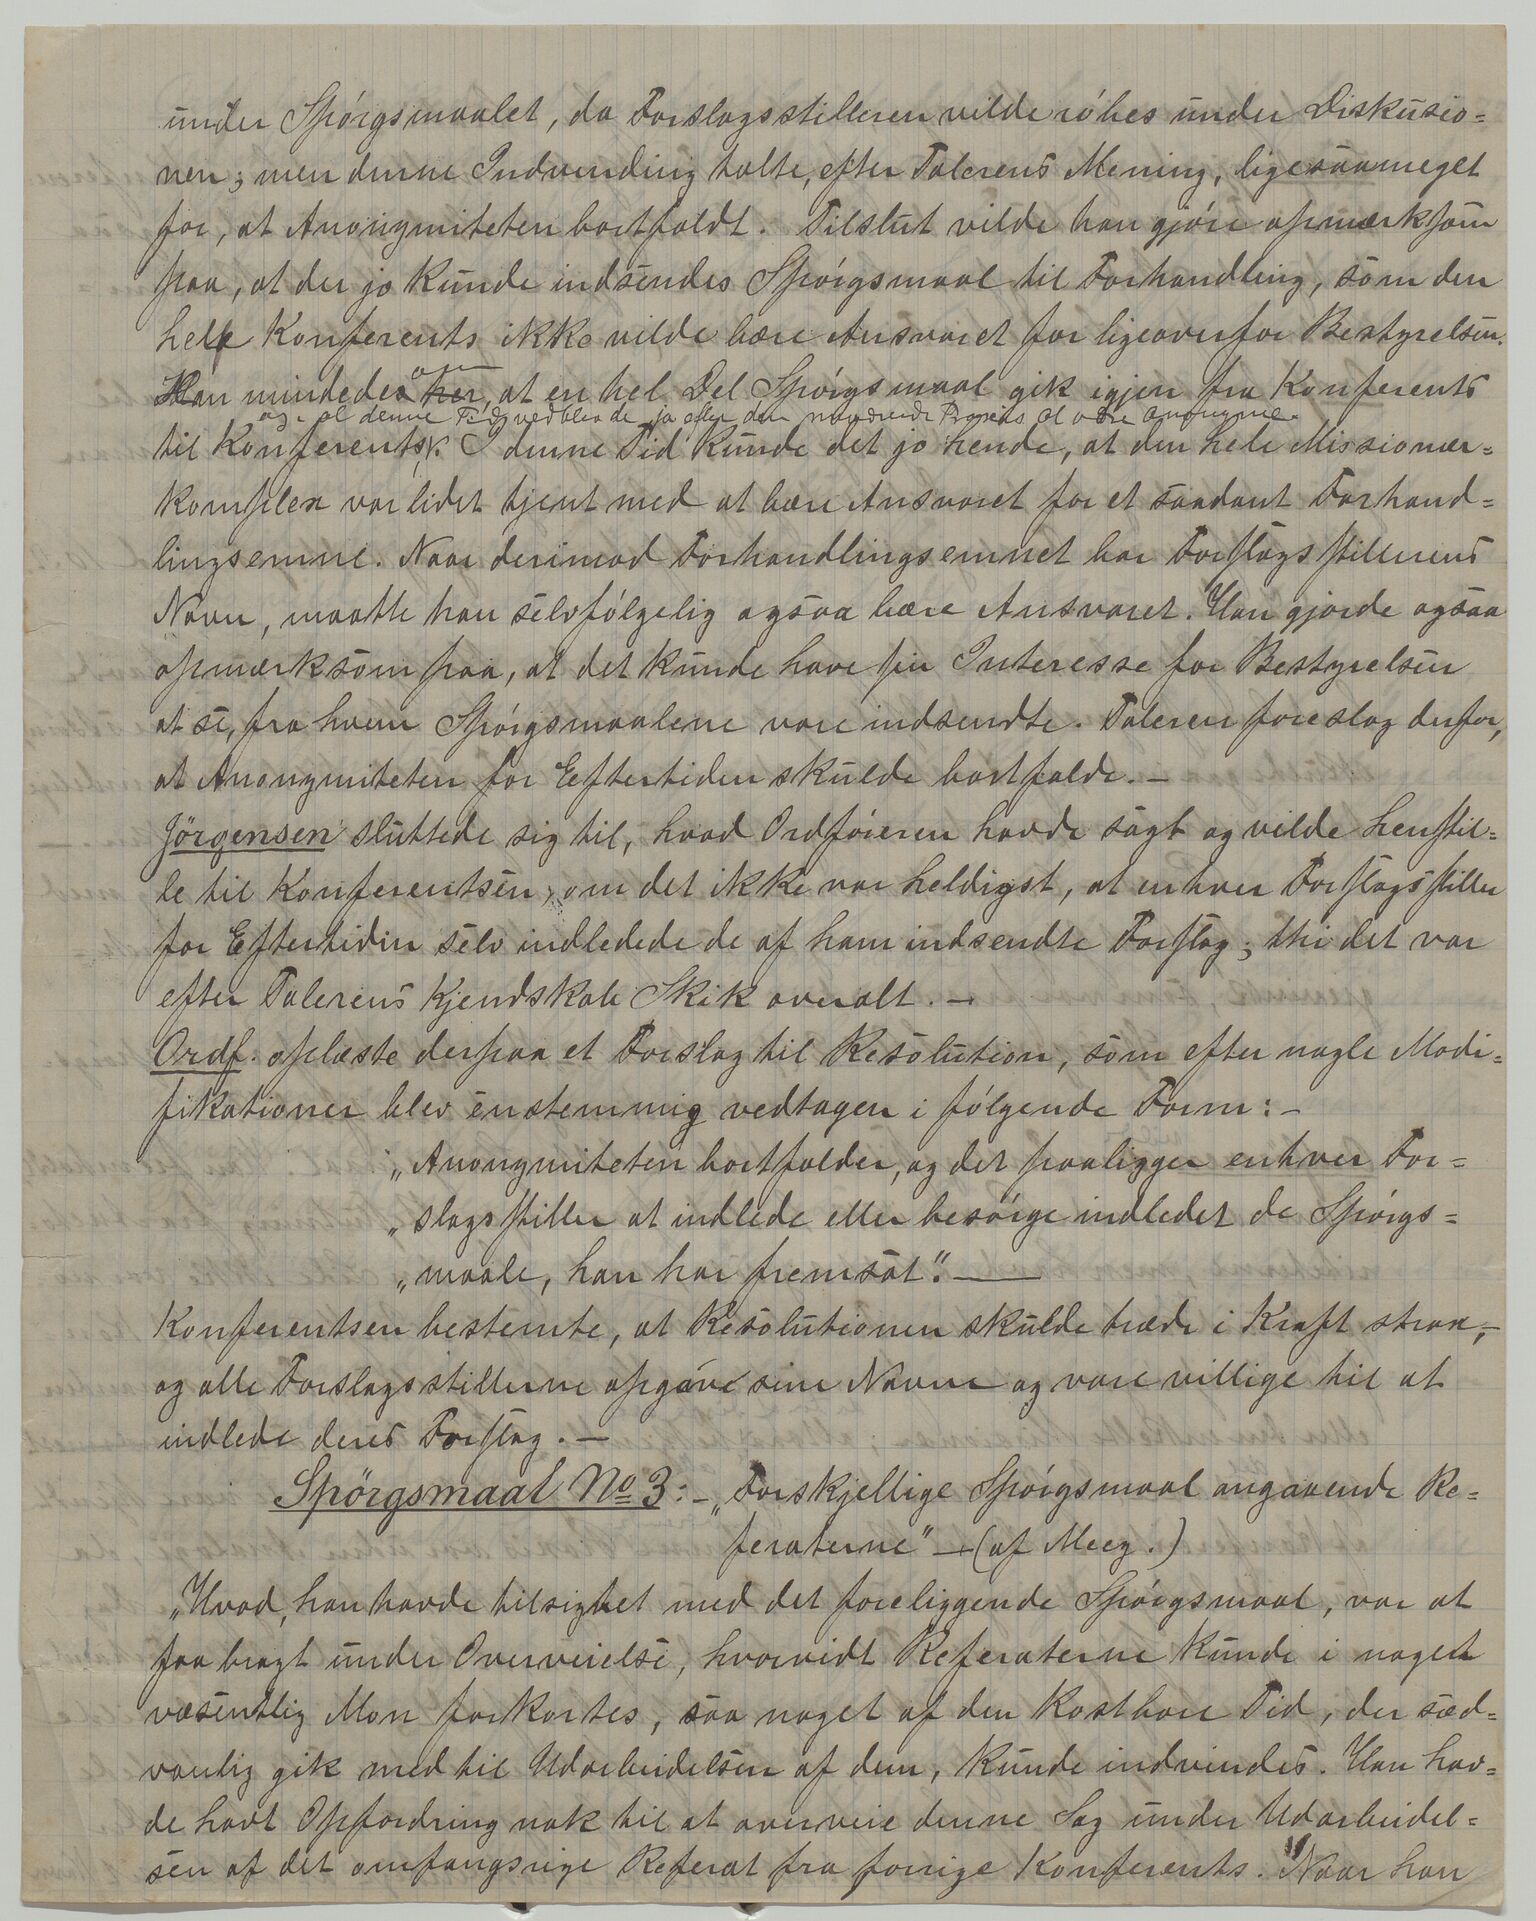 under Spörgsmaalet, da Forslagsstilleren vilde röbes under Diskusio=
nen; men denne Indvending talte, efter Talerens Mening, ligesaameget
for, at Anonymiteten bortfaldt. Tilslut vilde han gjöre opmærksom
paa, at der jo kunde indsendes Spörgsmaal til Forhandling, som den
hele Konferents ikke vilde bære Ansvaret for ligeoverfor Bestyrelsen.
Han mindedes om, at en hel Del Spörgsmaal gik igjen fra Konferents
og at denne vedblev de jo efter den nuværende Praxis at være anonyme.
til Konferents. I denne Tid kunde det jo hende, at den hele Missionær=
komplex var lidet tjent med at bære Ansvaret for et saadant Forhand=
lingsemne. Naar derimod Forhandlingsemnet har Forslagsstillerens
Navn, maatte han selvfölgelig ogsaa bære Ansvaret. Han gjorde ogsaa
opmærksom paa, at det kunde have sin Interesse for Bestyrelsen
at se, fra hvem Spörgsmaalene vare indsendte. Taleren foreslog derfor,
at Anonymiteten for Eftertiden skulde bortfalde. —
Jörgensen sluttede sig til, hvad Ordföreren havde sagt og vilde henstil=
le til Konferentsen, om det ikke var heldigst, at enhver Forslagsstiller
for Eftertiden selv indledede de af ham indsendte Forslag; thi det var
efter Talerens Kjendskab Skik overalt. —
Ordf. oplæste derpaa et Forslag til Resolution, som efter nogle Modi=
fikationer blev enstemmig vedtagen i fölgende Form: —
„Anonymiteten bortfalder, og det paaligger enhver For=
„slagsstiller at indlede eller besörge indledet de Spörgs=
„maale, han har fremsat". —
Konferentsen bestemte, at Resolutionen skulde træde i Kraft strax, —
og alle Forslagsstillerne opgave sine Navne og vare villige til at
indlede deres Forslag. —
Spörgsmaal No 3: — „Forskjellige Spörgsmaal angaaende Re=
feraterne" — (af Meeg.)
„Hvad, han havde tilsigtet med det foreliggende Spörgsmaal, var at
faa bragt under Overveielse, hvorvidt Referaterne kunde i nogen
væsentlig Mon forkortes, saa noget af den kostbare Tid, der sæd=
vanlig gik med til Udarbeidelsen af dem, kunde indvindes. Han hav=
de havt Opfordring nok til at overveie denne Sag under Udarbeidel=
sen af det omfangsrige Referat fra forrige Konferents. Naar han